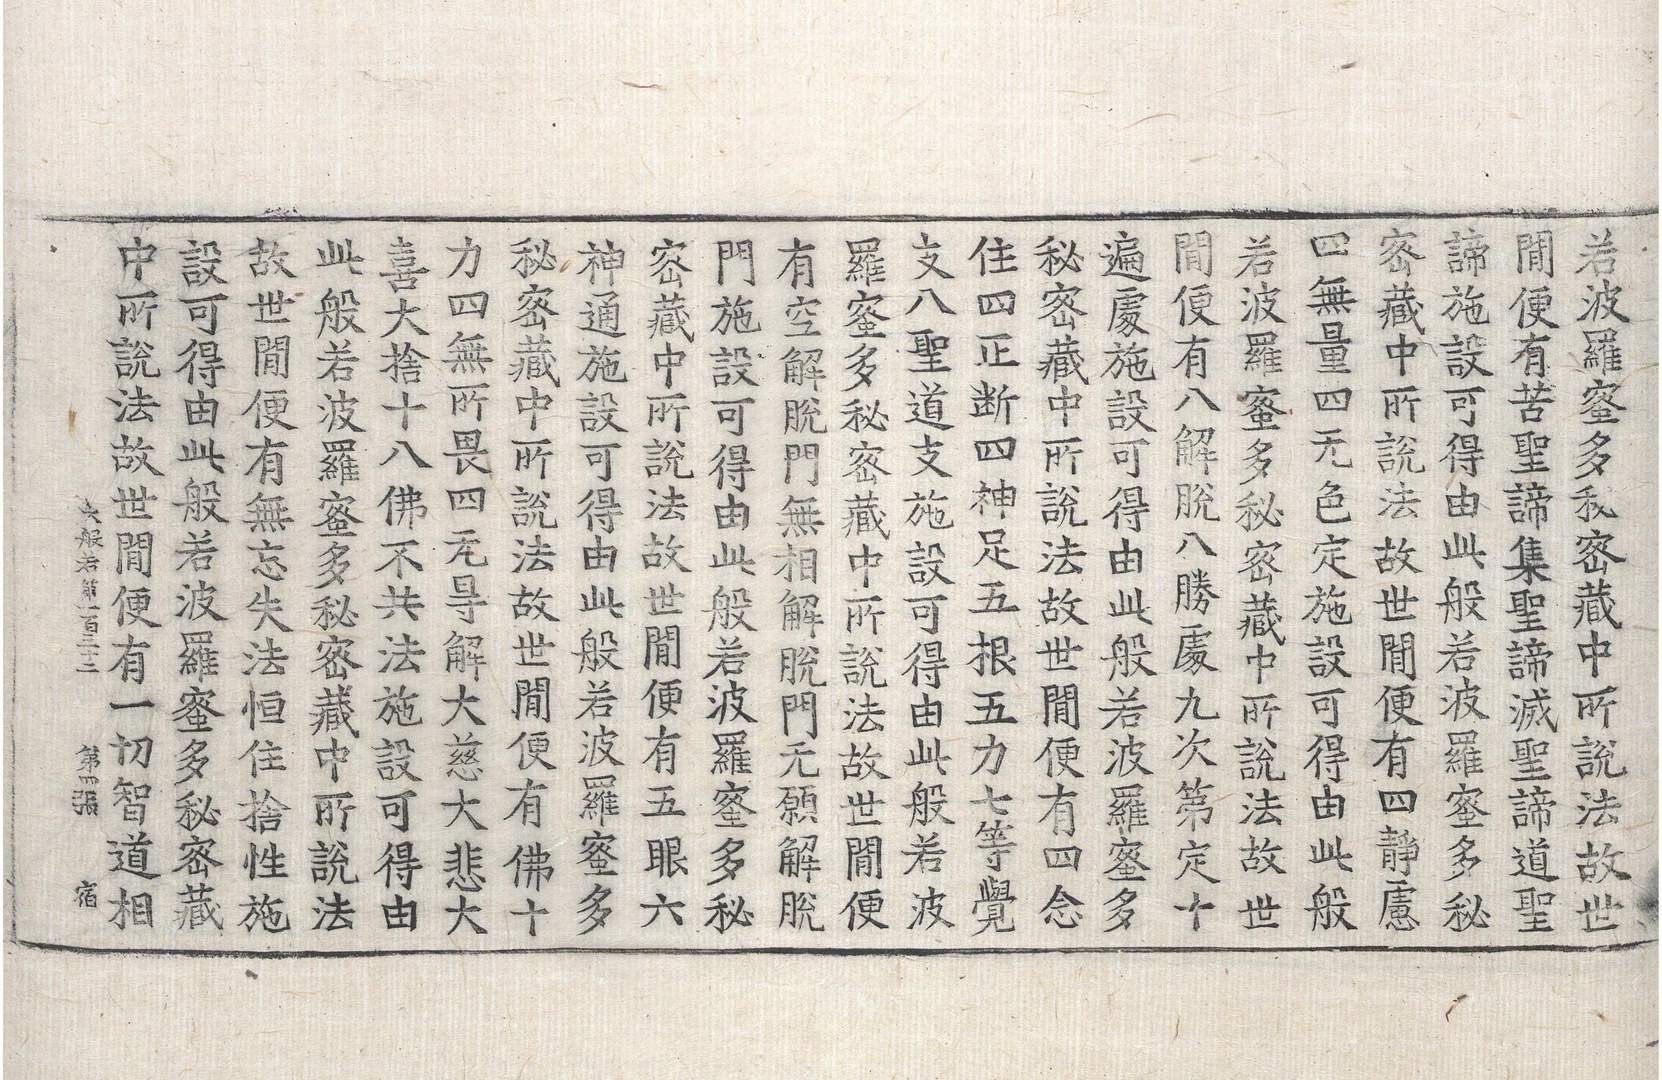 若波羅蜜多秘密藏中所說法故世
間便有苦聖諦集聖諦滅聖諦道聖
諦施設可得由此般若波羅蜜多秘
密藏中所說法故世間便有四靜慮
四無量四无色定施設可得由此般
若波羅蜜多秘密藏中所說法故世
間便有八解脫八勝處九次第定十
遍處施設可得由此般若波羅蜜多
秘密藏中所說法故世間便有四念
住四正斷四神足五根五力七等覺
支八聖道支施設可得由此般若波
羅蜜多秘密藏中所說法故世間便
有空解脫門無相解脫門无願解脫
門施設可得由此般若波羅蜜多秘
密藏中所說法故世間便有五眼六
神通施設可得由此般若波羅蜜多
秘密藏中所說法故世間便有佛十
力四無所畏四无㝵解大慈大悲大
喜大捨十八佛不共法施設可得由
此般若波羅蜜多秘密藏中所說法
故世間便有無忘失法恒住捨性施
設可得由此般若波羅蜜多秘密藏
中所說法故世間便有一切智道相
大般若第一百三十二 第四張 宿